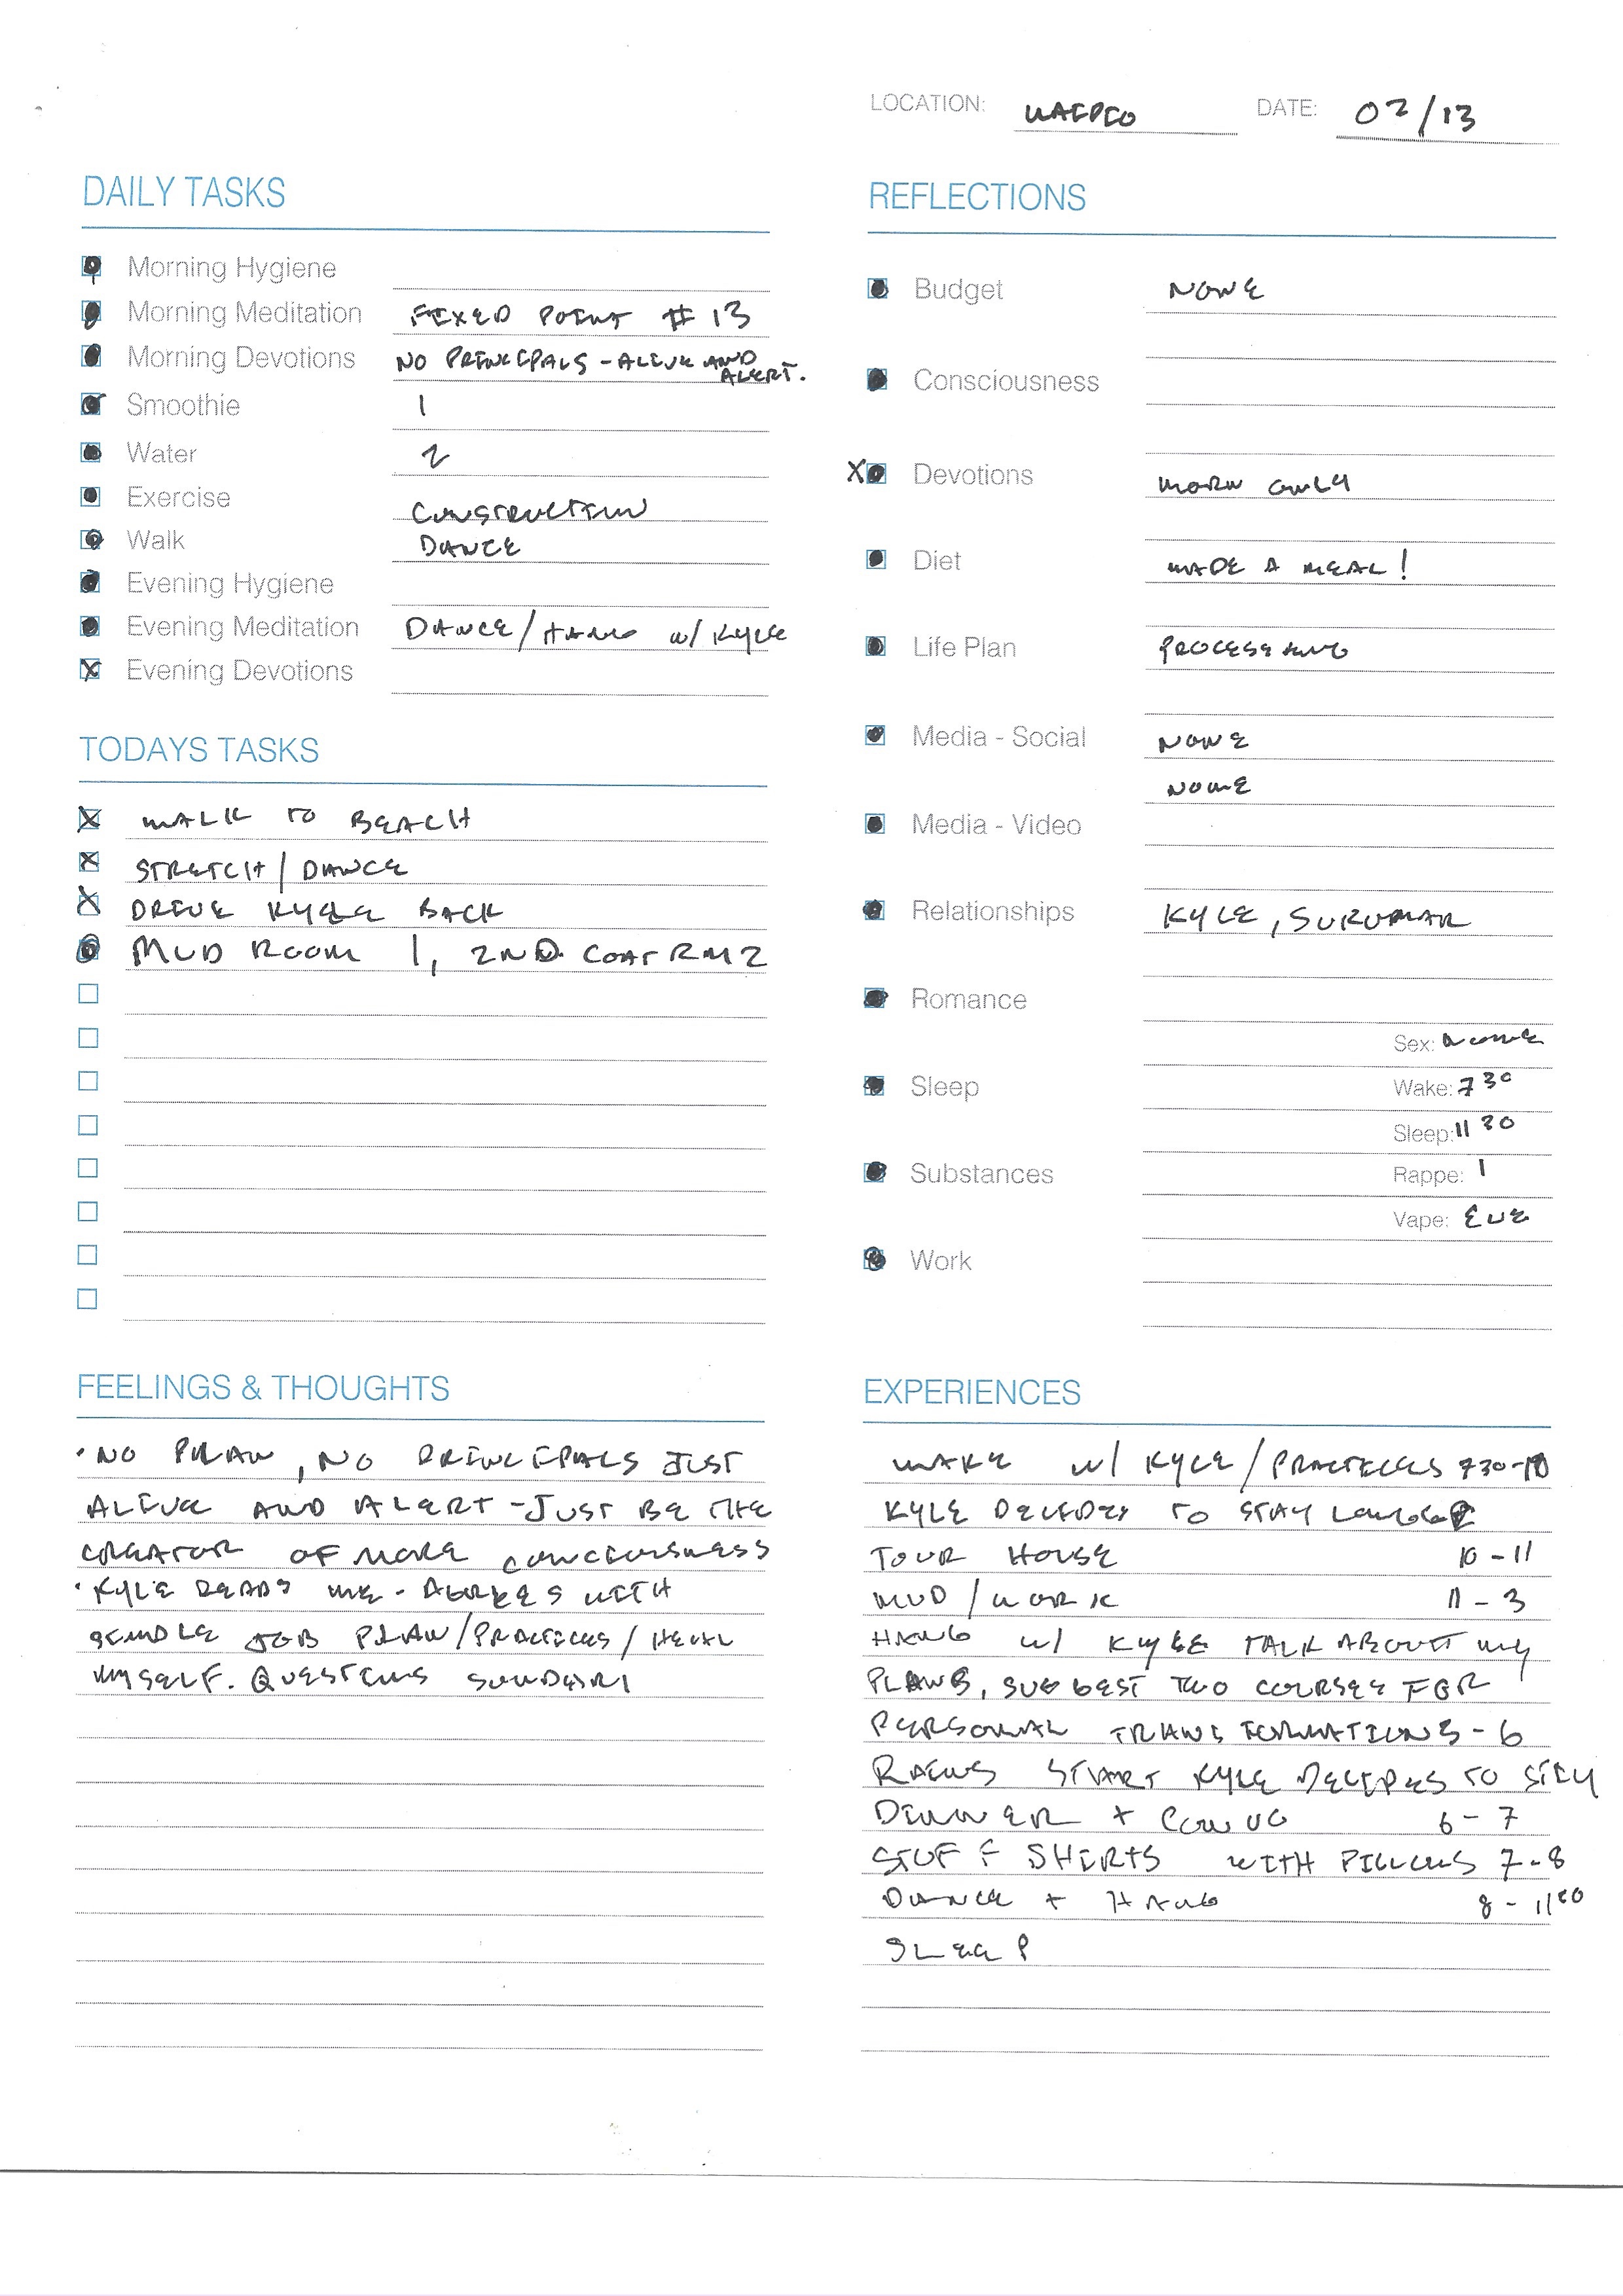 LOCATION: WAIPIO DATE: 02/13
DAILY TASKS
Morning Hygiene
Morning Meditation FIXED POINT #13
Morning Devotions NO PRINCIPALS - ALIVE AND
ALERT.
Smoothie 1
Water 2
Exercise CONSTRUCTION
Walk DANCE
Evening Hygiene
Evening Meditation DANCE/HANG W/ KYLE
Evening Devotions
TODAYS TASKS
WALK TO BEACH
STRETCH / DANCE
DRIVE KYLE BACK
MUD ROOM 1, 2ND COAT RM2
REFLECTIONS
Budget NONE
Consciousness
Devotions MORN ONLY
Diet MADE A MEAL!
Life Plan PROCESSING
Media - Social NONE
NONE
Media - Video
Relationships KYLE,
Romance
Sex: NONE
Sleep Wake: 7 30
Sleep: 11 30
Substances Rappe: 1
Vape: EVE
Work
FEELINGS & THOUGHTS
• NO PLAN, NO PRINCIPALS JUST
ALIVE AND ALERT - JUST BE THE
CREATOR OF MORE CONCIOUSNESS
• KYLE READS ME - AGREES WITH
SIMPLE JOB PLAN/PRACTICES/HEAL
MYSELF. QUESTIONS SUNDARI
EXPERIENCES
WAKE W/ KYLE/PRACTICES 730-10
KYLE DECIDES TO STAY LONGER
TOUR HOUSE 10-11
MUD/WORK 11-3
HANG W/ KYLE TALK ABOUT MY
PLANS, SUGGEST TWO COURSES FOR
PERSONAL TRANSFORMATIONS - 6
RAINS START KYLE DECIDES TO STAY
DINNER + CONVO 6-7
STUFF SHIRTS WITH PILLOWS 7-8
DANCE + HANG 8-11
SLEEP